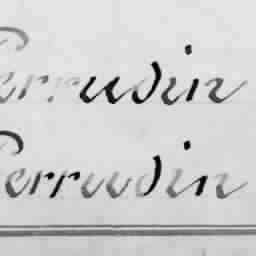 Perrudin
Perrudin